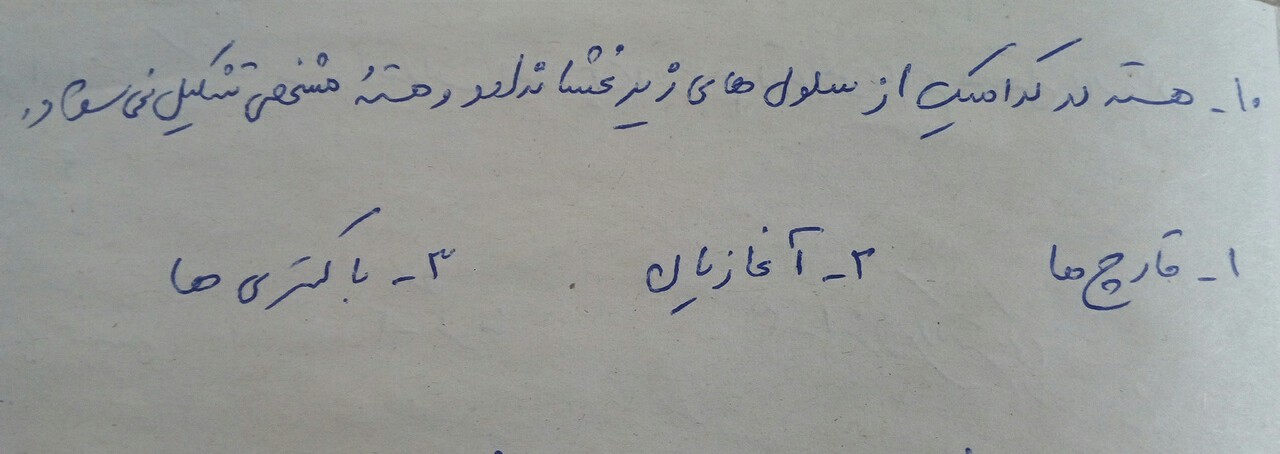 ۱۰- هسته در کدامیک از سلول های زیر غشا ندارد و هستهٔ مشخصی تشکیل نمی شود.
۱- قارچ ها ۲- آغازیان ۳- باکتری ها